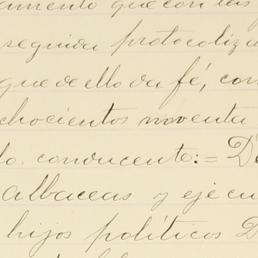 amento que con las
seguida protocoliza
que de ello da fé, con
chocientos noventa
lo conducente: = D
albaceas y ejecu
hijos políticos D